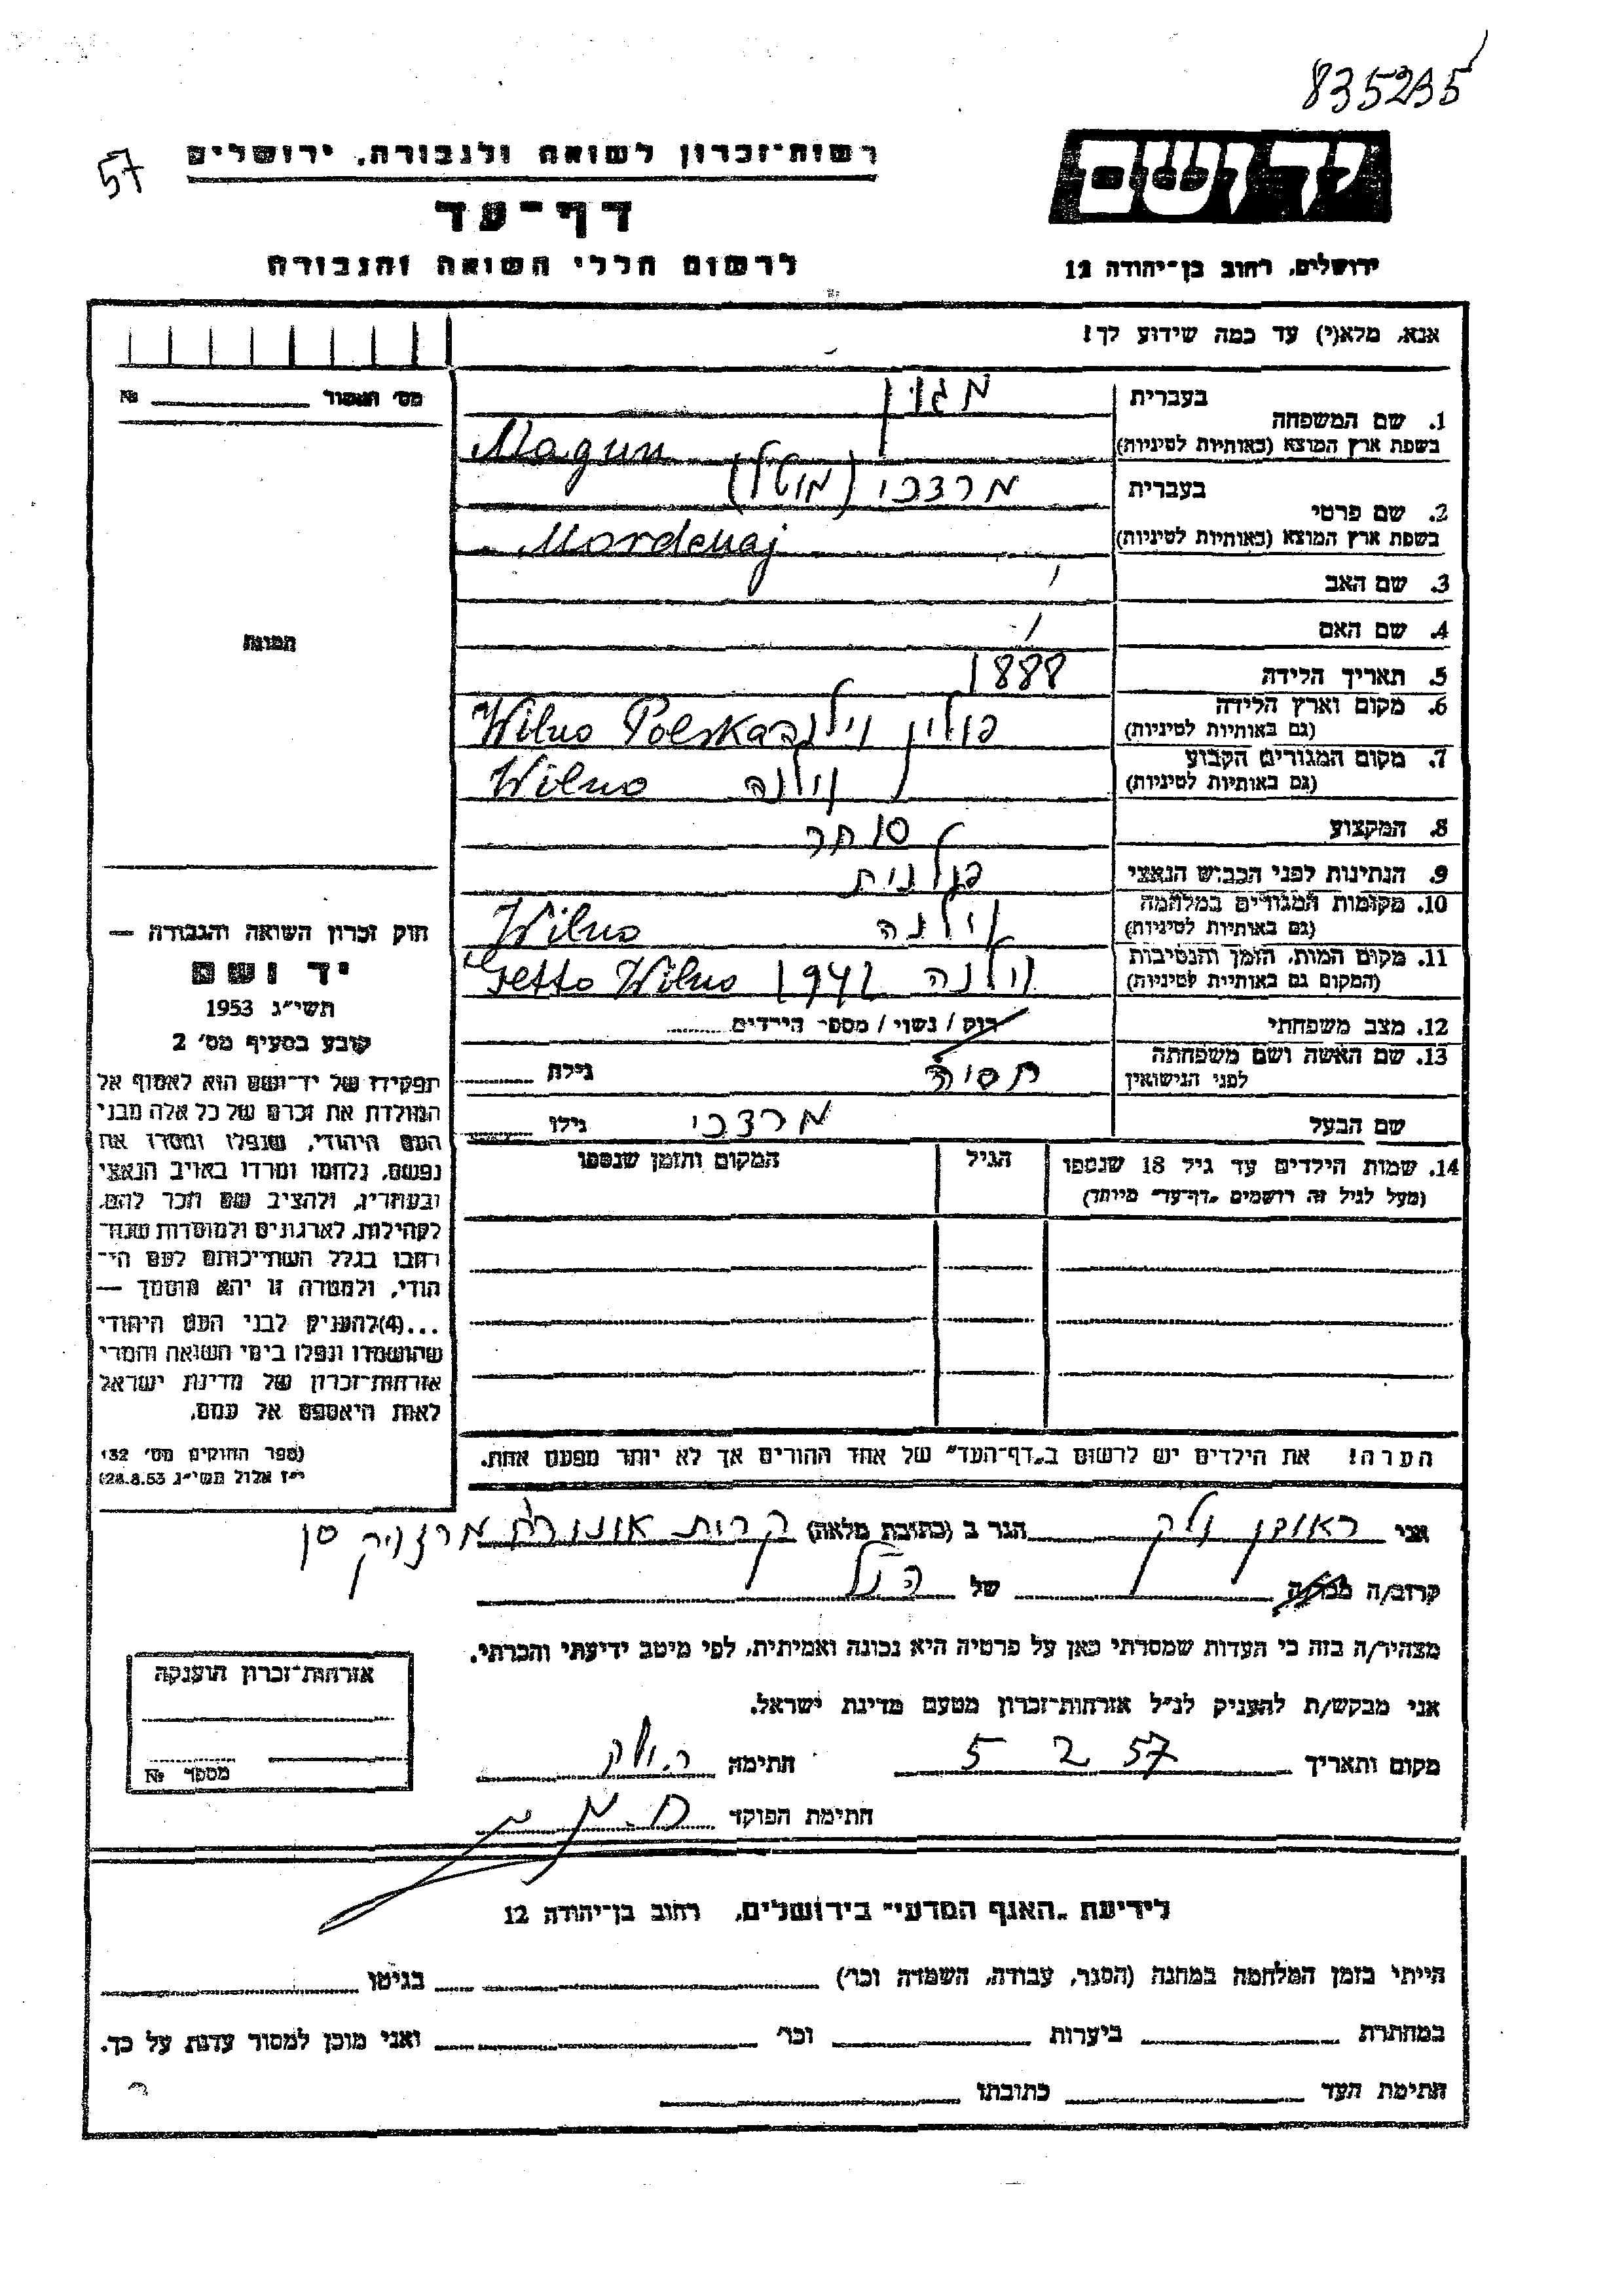 835235
57
רשות־זכרון לשואה ולגבורה, ירושלים
יד ושם
דף־עד
לרשום חללי השואה והגבורה
ירושלים, רחוב בן־יהודה 12
אנא, מלא(י) עד כמה שידוע לך!
מס' האסור № 
1. שם המשפחה
בעברית מגון
בשפת ארץ המוצא (באותיות לטיניות) Magun
2. שם פרטי
בעברית מרדכי (מוטל)
בשפת ארץ המוצא (באותיות לטיניות) Mordchaj
3. שם האב
4. שם האם
5. תאריך הלידה 1888
6. מקום וארץ הלידה
(גם באותיות לטיניות) פולין וילנה Wilno Polska
7. מקום המגורים הקבוע
(גם באותיות לטיניות) וילנה Wilno
8. המקצוע סוחר
9. הנתינות לפני הכבוש הנאצי פולנית
10. מקומות המגורים במלחמה
(גם באותיות לטיניות) וילנה Wilno
11. מקום המות, הזמן והנסיבות
(המקום גם באותיות לטיניות) וילנה 1942 Getto Wilno
12. מצב משפחתי רוק / נשוי / מספר הילדים
13. שם האשה ושם משפחתה
לפני הנישואין גילה
שם הבעל מרדכי גילו
14. שמות הילדים עד גיל 18 שנספו
(מעל לגיל זה רושמים "דף־עד" מיוחד)
הגיל
המקום והזמן שנספו
הערה! את הילדים יש לרשום ב"דף־העד" של אחד ההורים אך לא יותר מפעם אחת.
תמונה
חוק זכרון השואה והגבורה —
יד ושם
תשי״ג 1953
קובע בסעיף מס' 2
תפקידו של יד־ושם הוא לאסוף אל
המולדת את זכרם של כל אלה מבני
העם היהודי, שנפלו ומסרו את
נפשם, נלחמו ומרדו באויב הנאצי
ובעוזריו, ולהציב שם וזכר להם,
לקהילות, לארגונים ולמוסדות שנח־
רבו בגלל השתייכותם לעם הי־
הודי, ולמטרה זו יהא מוסמך —
...(4)להעניק לבני העם היהודי
שהושמדו ונפלו בימי השואה והמרי
אזרחות־זכרון של מדינת ישראל
לאות היאספם אל עמם.
(ספר החוקים מס' 132
י״ז אלול תשי״ג 28.8.53)
אני ראובן ולק הגר ב (כתובת מלאה) קרית אונו
קרוב/ה מכר/ה של הנ״ל
מצהיר/ה בזה כי העדות שמסרתי כאן על פרטיה היא נכונה ואמיתית, לפי מיטב ידיעתי והכרתי.
אני מבקש/ת להעניק לנ״ל אזרחות־זכרון מטעם מדינת ישראל.
מקום ותאריך 5 2 57 חתימה ר. ולק
חתימת הפוקד
אזרחות־זכרון הוענקה
מספר №
לידיעת "האגף המדעי" בירושלים, רחוב בן־יהודה 12
הייתי בזמן המלחמה במחנה (הסגר, עבודה, השמדה וכו') בגיטו
במחתרת ביערות וכו' ואני מוכן למסור עדות על כך.
חתימת העד כתובתו